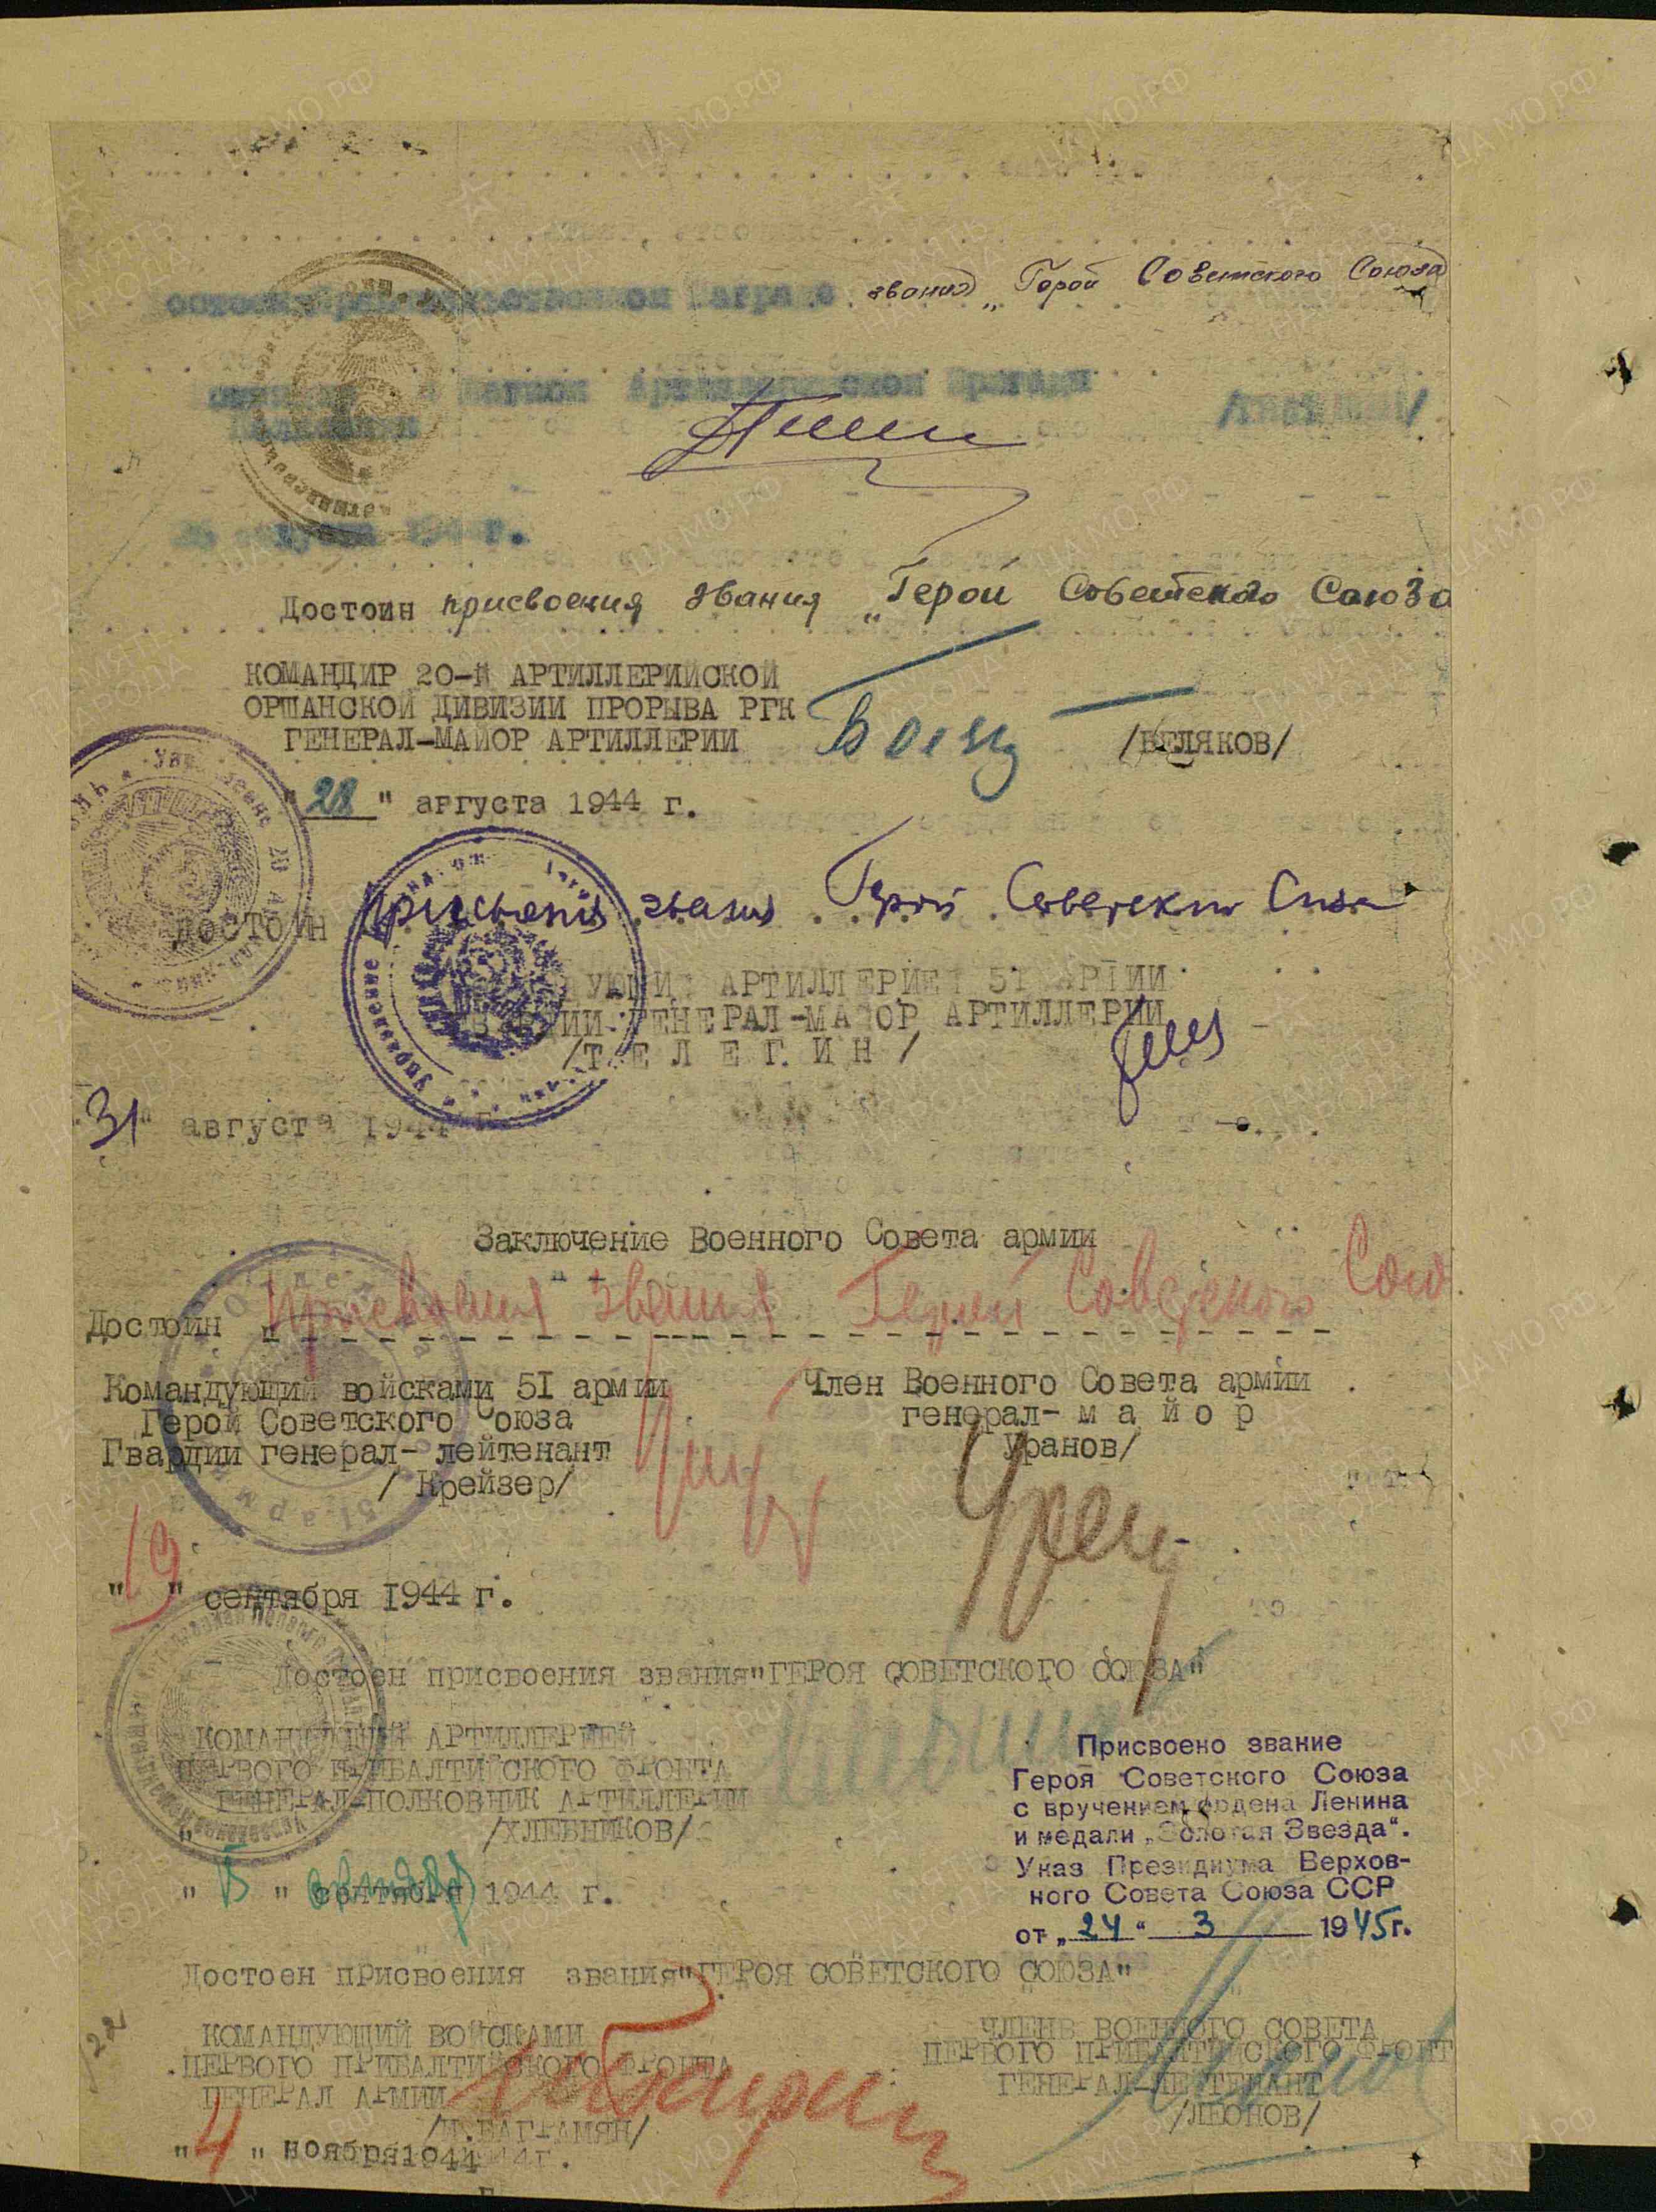 звания „Герой Советского Союза
августа 1944 г.
Достоин присвоения звания „Герой Советского Союза
КОМАНДИР 20-Й АРТИЛЛЕРИЙСКОЙ
ОРШАНСКОЙ ДИВИЗИИ ПРОРЫВА РГК
ГЕНЕРАЛ-МАЙОР АРТИЛЛЕРИИ /БЕЛЯКОВ/
"28" августа 1944 г.
ДОСТОИН присвоения звания Герой Советского Союза
АРТИЛЛЕРИЕЙ 51 АРМИИ
ГЕНЕРАЛ-МАЙОР АРТИЛЛЕРИИ
/Т Е Л Е Г И Н/
31" августа 1944 г.
Заключение Военного Совета армии
Достоин присвоения звания Герой Советского Сою
Командующий войсками 51 армии
Герой Советского Союза
Гвардии генерал-лейтенант
/Крейзер/
Член Военного Совета армии
генерал-м а й о р
Уранов/
"19" сентября 1944 г.
Достоен присвоения звания "ГЕРОЯ СОВЕТСКОГО СОЮЗА"
КОМАНДУЮЩИЙ АРТИЛЛЕРИЕЙ
ПЕРВОГО ПРИБАЛТИЙСКОГО ФРОНТА
ГЕНЕРАЛ-ПОЛКОВНИК АРТИЛЛЕРИИ
/ХЛЕБНИКОВ/
1944 г.
Присвоено звание
Героя Советского Союза
с вручением ордена Ленина
и медали „Золотая Звезда".
Указ Президиума Верхов-
ного Совета Союза ССР
от „24" 3 1945г.
Достоен присвоения звания "ГЕРОЯ СОВЕТСКОГО СОЮЗА"
КОМАНДУЮЩИЙ ВОЙСКАМИ
ПЕРВОГО ПРИБАЛТИЙСКОГО ФРОНТА
ГЕНЕРАЛ АРМИИ
/И.БАГРАМЯН/
"4" ноября 1944 г.
ЧЛЕН ВОЕННОГО СОВЕТА
ПЕРВОГО ПРИБАЛТИЙСКОГО ФРОНТ
ГЕНЕРАЛ-ЛЕЙТЕНАНТ
/ЛЕОНОВ/